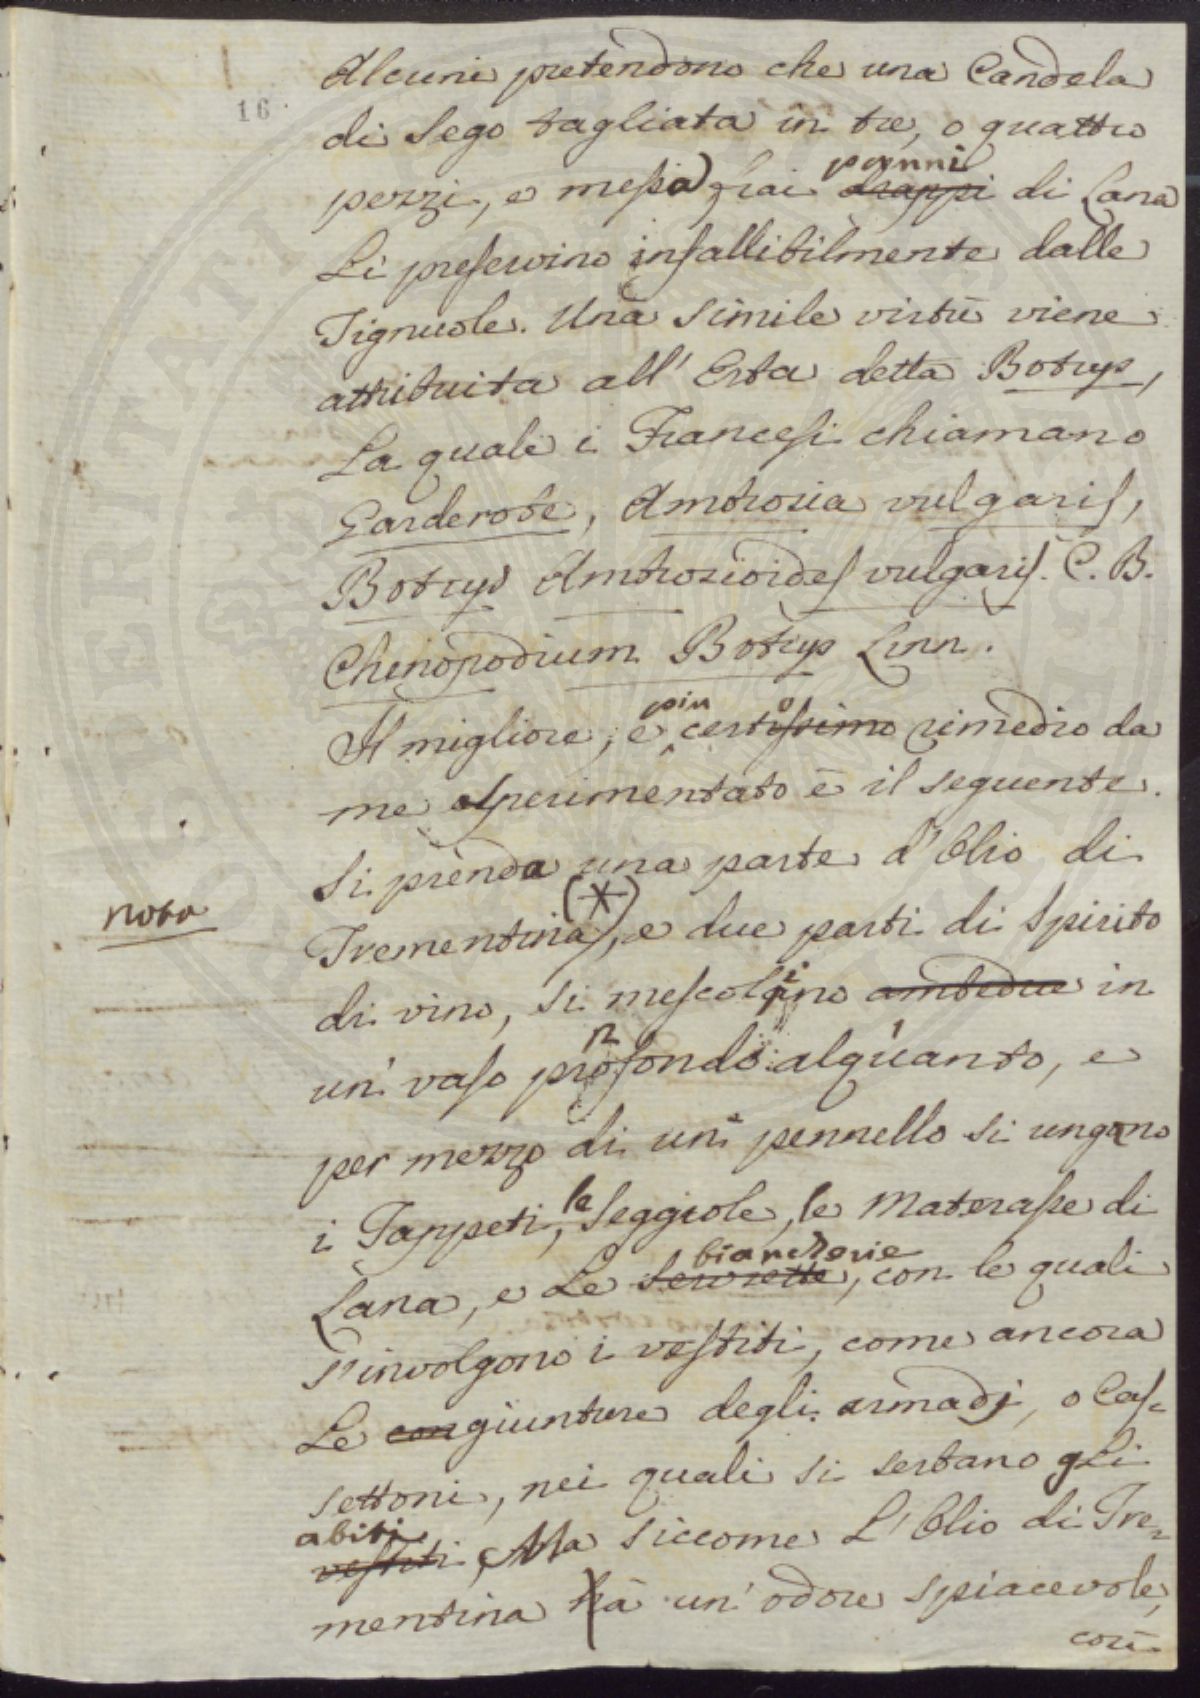 16
Alcuni pretendono che una Candela
di Sego tagliata in tre, o quattro
panni
pezzi, e messa frai drappi di Lana
Li preservino infallibilmente dalle
Tignuole. Una simile virtù viene
attribuita all' Erba detta Botrys,
La quale i Francesi chiamano
Garderobe, Ambrosia vulgaris,
Botrys Ambrosioides vulgaris. C. B.
Chenopodium Botrys Linn.
più o
Il migliore, e certissimo rimedio da
me sperimentato è il seguente.
Si prenda una parte d'Olio di
nota
(*)
Trementina, e due parti di Spirito
di vino, si mescolino ambedue in
un' vaso profondo alquanto, e
per mezzo di un' pennello si ungono
i Tappeti, le Seggiole, le Materasse di
biancherie
Lana, e Le Serviette, con le quali
s'involgono i vestiti, come ancora
Le congiunture degli armadj, o Cas-
settoni, nei quali si serbano gLi
abiti
vestiti, Ma siccome L'Olio di Tre-
mentina hà un' odore spiacevole,
così